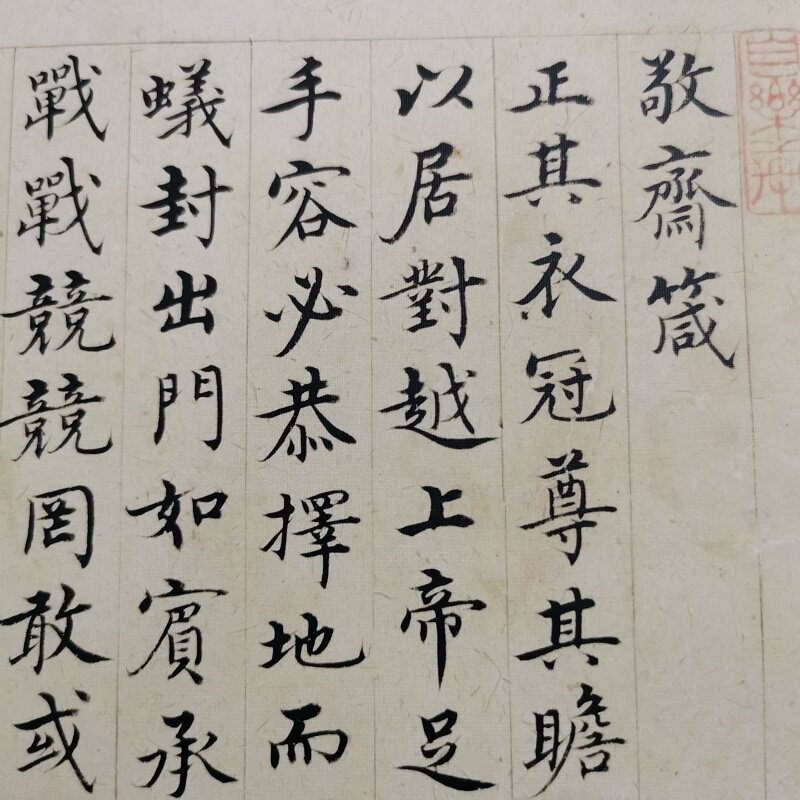 敬齋箴
正其衣冠尊其瞻
以居對越上帝足
手容必恭擇地而
蟻封出門如賓承
戰戰競競罔敢或